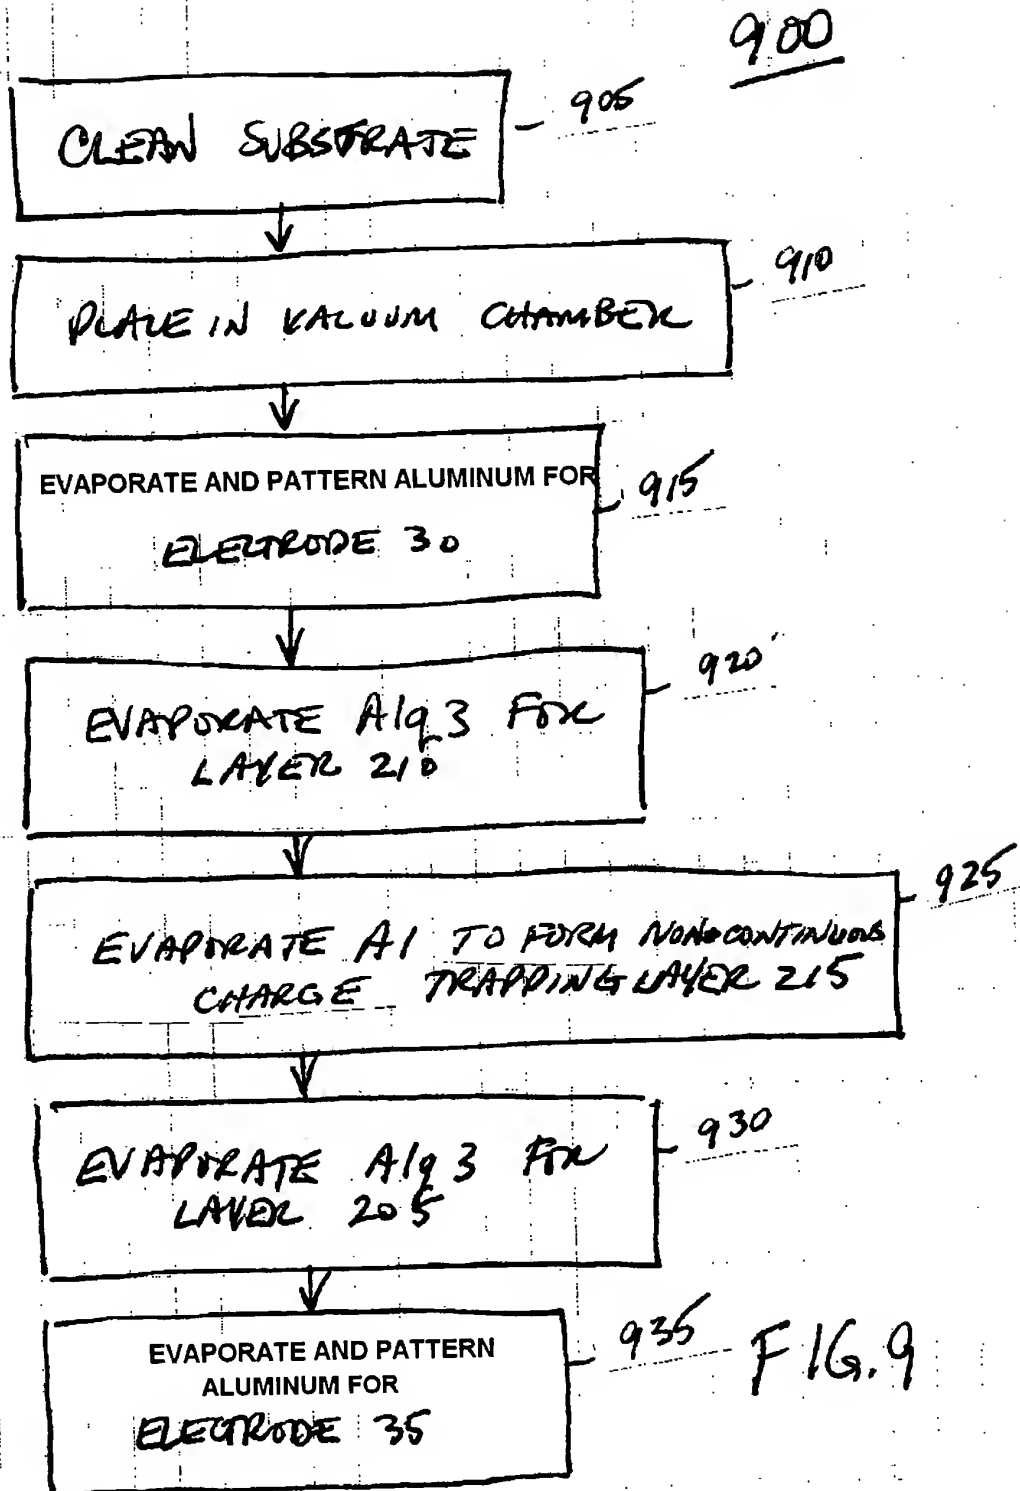 900
CLEAN SUBSTRATE
905
PLACE IN VACUUM CHAMBER
910
EVAPORATE AND PATTERN ALUMINUM FOR
ELECTRODE 30
915
EVAPORATE Alq3 FOR
LAYER 210
920
EVAPORATE Al TO FORM NON-CONTINUOUS
CHARGE TRAPPING LAYER 215
925
EVAPORATE Alq3 FOR
LAYER 205
930
EVAPORATE AND PATTERN
ALUMINUM FOR
ELECTRODE 35
935
FIG.9